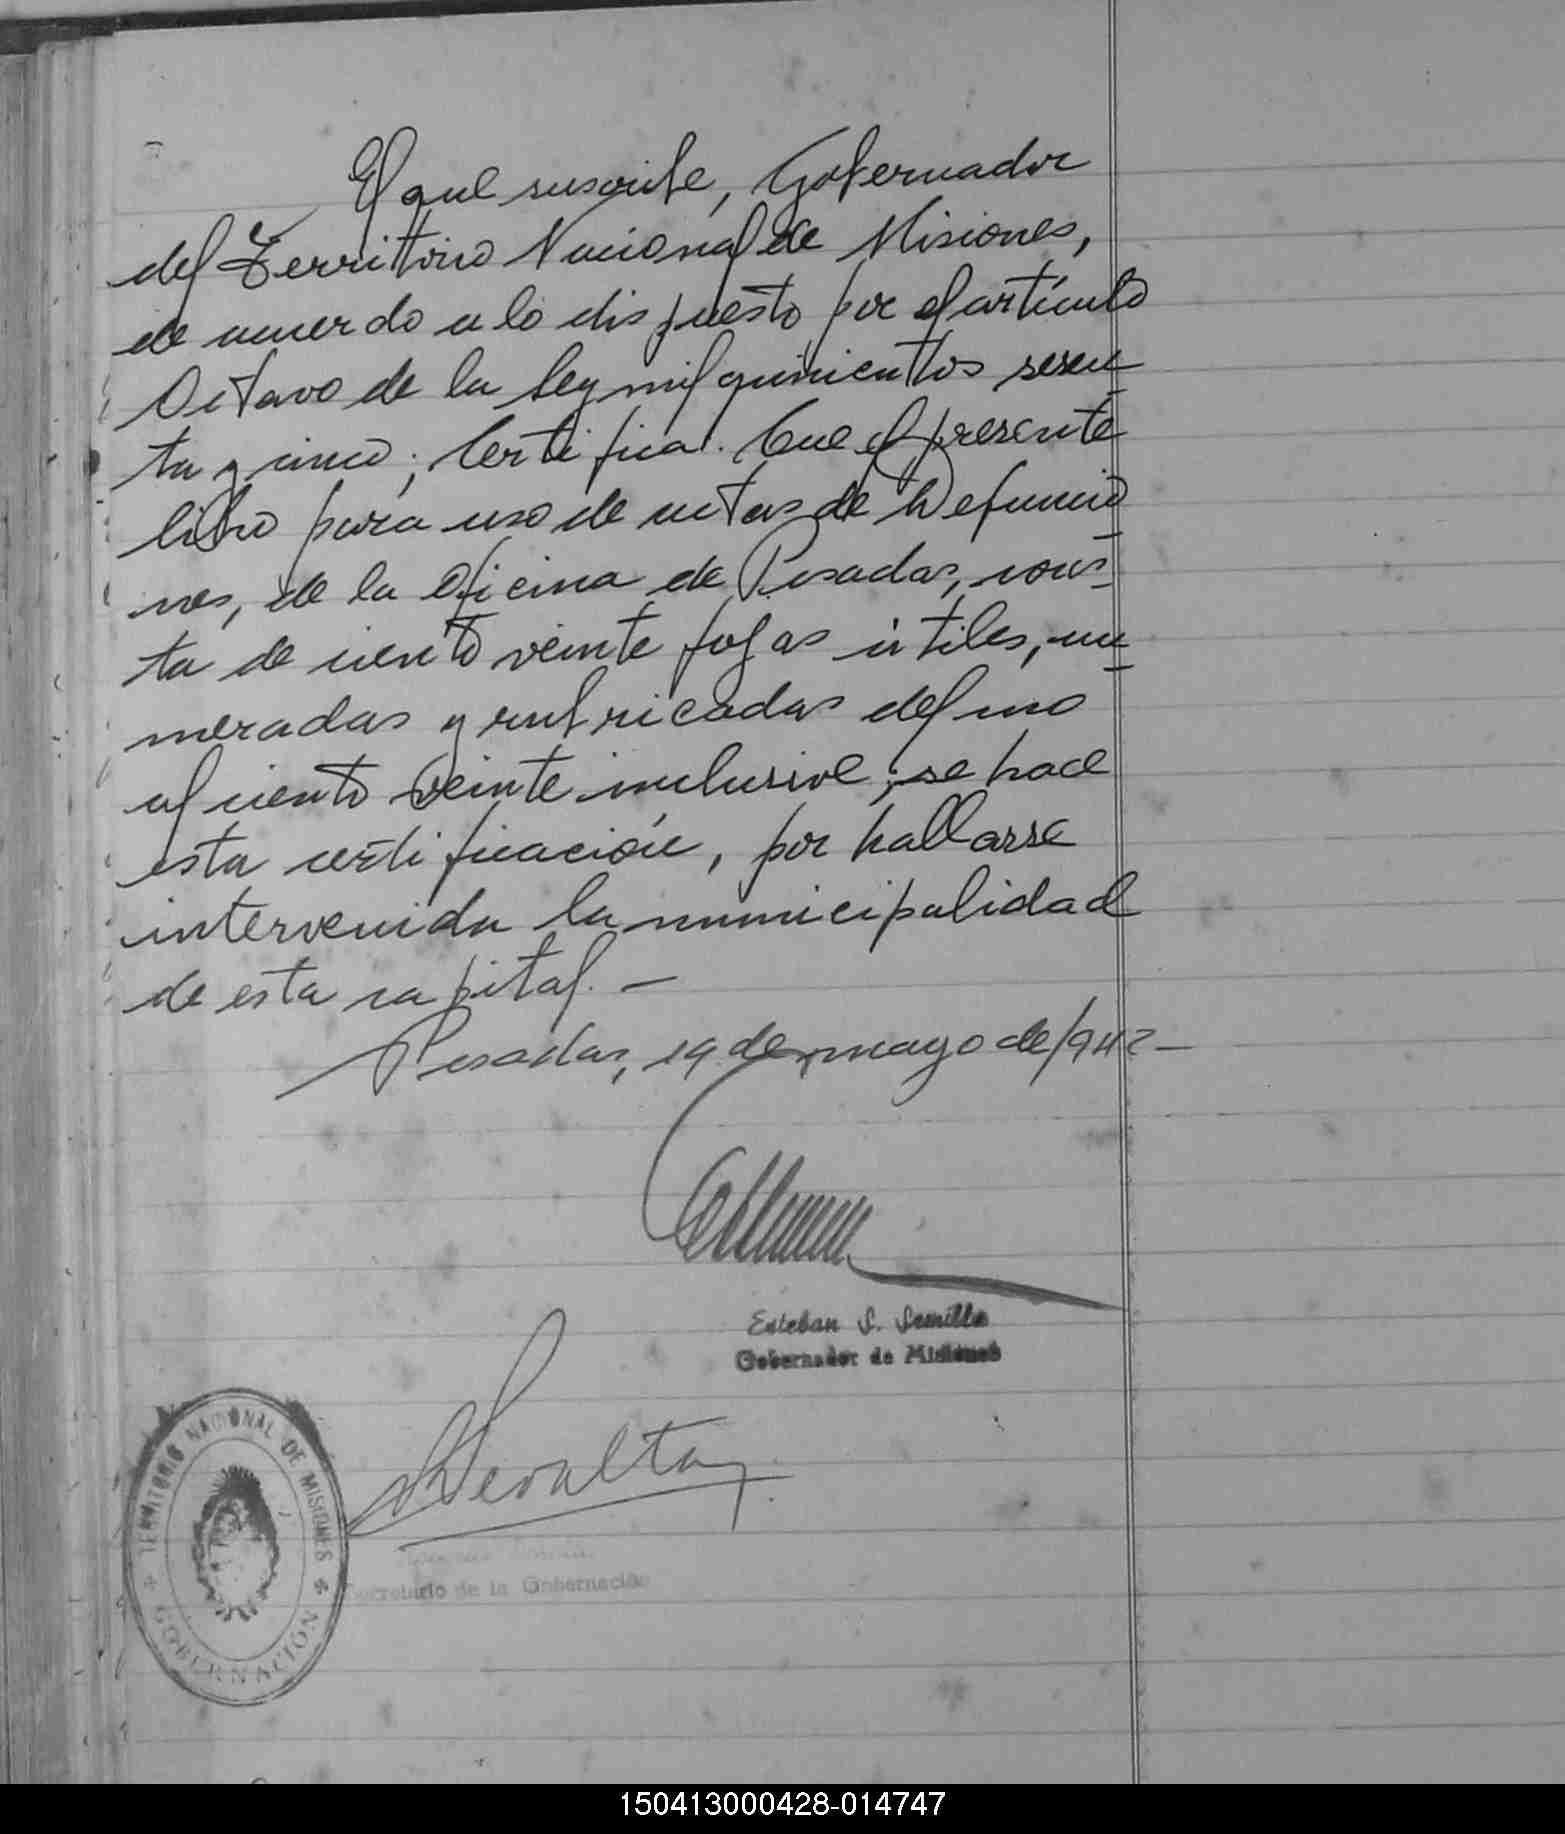 El que suscribe, Gobernador
del Territorio Nacional de Misiones,
de acuerdo a lo dispuesto por el artículo
Octavo de la Ley mil quinientos sesen
ta y cinco; Certifica: Que el presente
libro para uso de actas de Defuncio
nes, de la Oficina de Posadas, cons-
ta de ciento veinte fojas útiles, nu
meradas y rubricadas del uno
al ciento veinte inclusive; se hace
esta certificación, por hallarse
intervenida la municipalidad
de esta capital. —
Posadas, 19 de mayo de 1942 —
Esteban S. Semillo
Gobernador de Misiones
Peralta
Secretario de la Gobernación
TERRITORIO NACIONAL DE MISIONES
GOBERNACIÓN
150413000428-014747